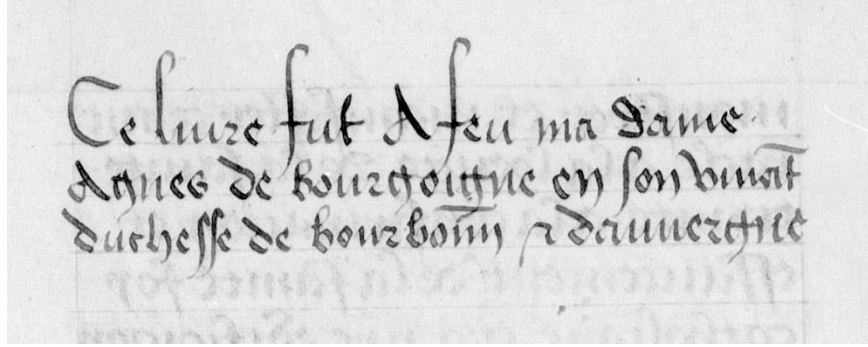 Ce livre fut A feu ma dame
Agnes de bourgoigne en son vivāt
duchesse de bourboñn & dauvergne